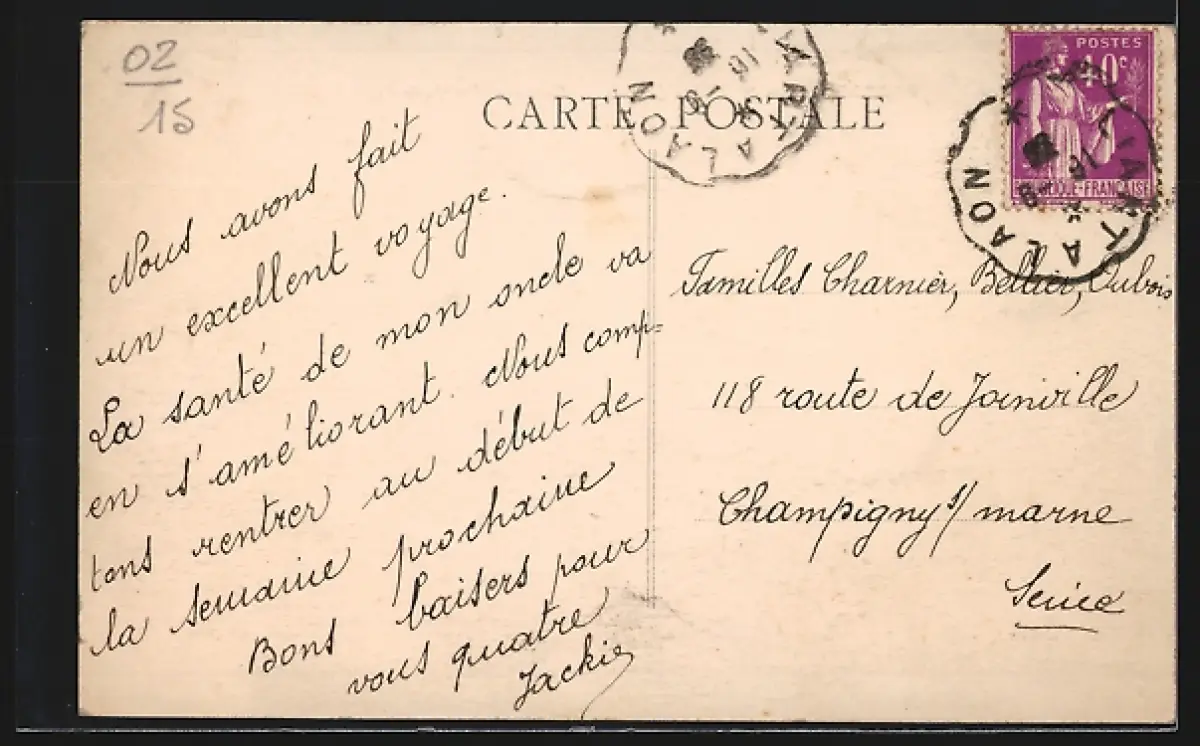 02
15
CARTE POSTALE
POSTES
40c
LAON
LAON
Nous avons fait
un excellent voyage.
La santé de mon oncle va
en s'améliorant. Nous comp=
tons rentrer au début de
la semaine prochaine
Bons baisers pour
vous quatre
Jackie
Familles Charnier, Bellier, Dubois
118 route de Joinville
Champigny s/ marne
Seine